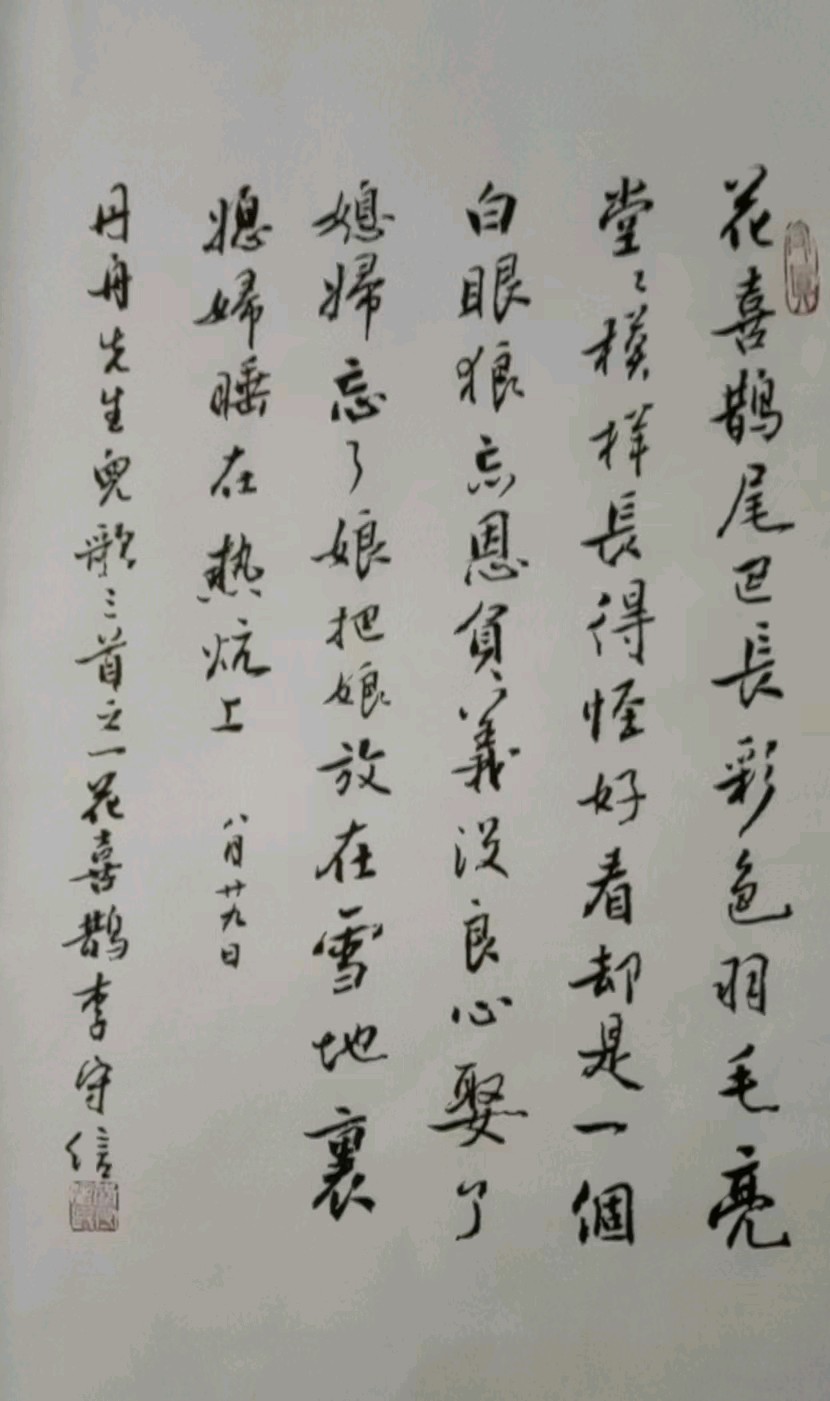 花喜鵲尾巴長彩色羽毛亮
堂々模样長得怪好看却是一個
白眼狼忘恩負義没良心娶了
媳婦忘了娘把娘放在雪地裏
媳婦睡在热炕上
八月廿九日
丹舟先生兒歌三首之一花喜鵲李守信